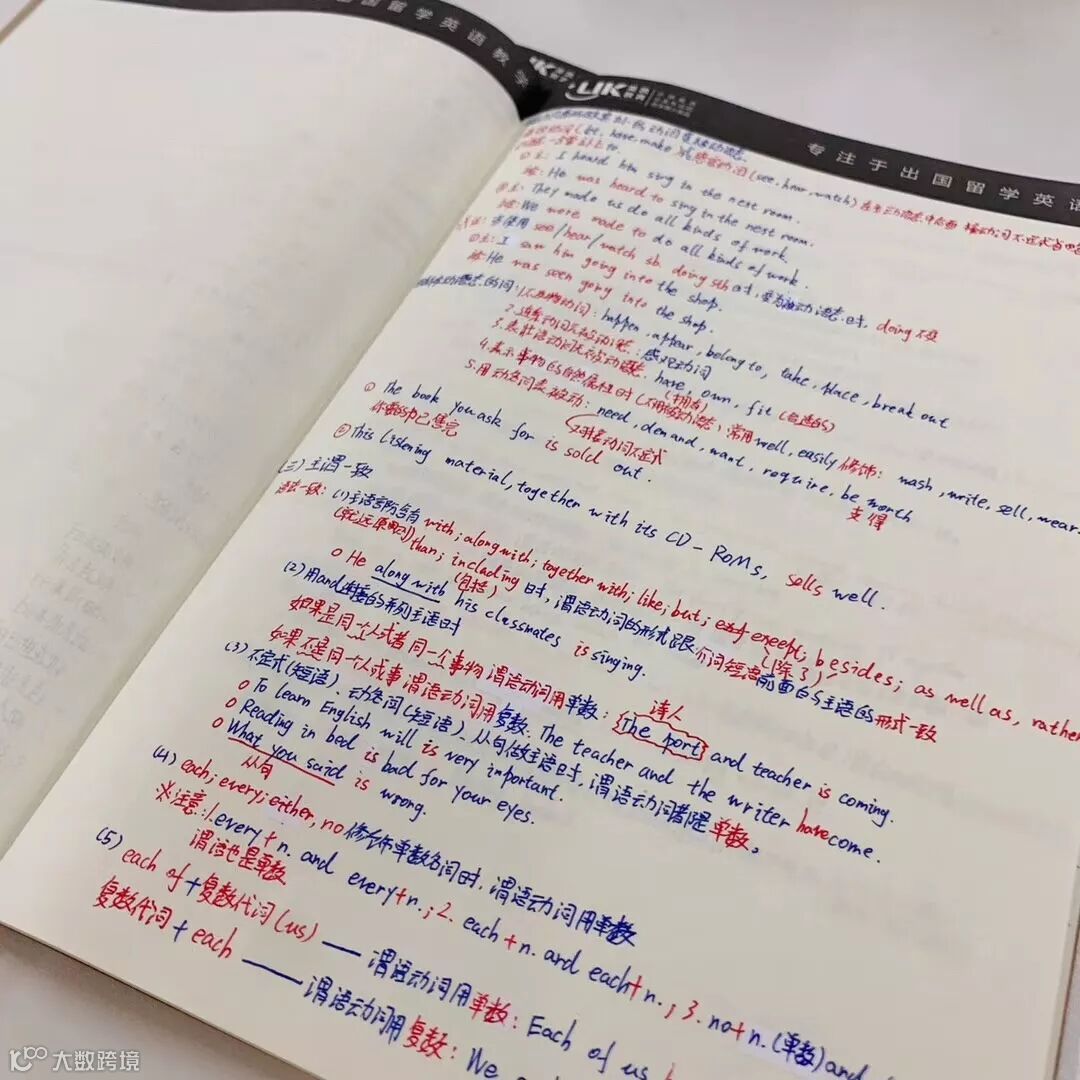 出国留学英语教学
UK
专注于出国留学英语
(let, have, make) 或感官动词 (see, hear, watch) 在主动语态中后面接动词不定式
to.
①主: I heard him sing in the next room.
He was heard to sing in the next room.
②主: They made us do all kinds of work.
We were made to do all kinds of work.
使用 see/hear/watch sb. doing sth 时, 变为被动语态时, doing 不变
①主: I saw him going into the shop.
He was seen going into the shop.
被动语态的词: 1.不及物动词: happen, appear, belong to, take place, break out
2.连系动词无被动语态: 感观动词
3.表状语动词无被动语态: have, own, fit (合适的)
(拥有)
4.表示事物的自然属性时 (不用被动语态), 常用 well, easily 修饰: wash, write, sell, wear
5.用动名词表被动: need, demand, want, require, be worth
动词不定式
支得
① The book you ask for is sold out.
你要的书已售完
② This listening material, together with its CD-ROMs, sells well.
(三) 主谓一致
语法一致: (1) 主语后含有 with; along with; together with; like; but; except; besides; as well as, rather
(就远原则) than; including 时, 谓语动词的形式跟介词短语前面的主语的形式一致
(包括)
(除了)
o He along with his classmates is singing.
(2) 用and连接的系列主语时
如果是同一个人或者同一个事物 谓语动词用单数: The port and teacher is coming.
诗人
如果不是同一个人或事 谓语动词用复数: The teacher and the writer have come.
(3) 不定式(短语)、动名词(短语)、从句做主语时, 谓语动词都是单数。
o To learn English will is very important.
o Reading in bed is bad for your eyes.
o What you said is wrong.
从句
(4) each; every; either, no 修饰单数名词时, 谓语动词用单数
※注意: 1.every+n. and every+n.; 2. each+n. and each+n.; 3. no+n.(单数) and
谓语也是单数
(5) each of + 复数代词(us) — 谓语动词用单数: Each of us
复数代词 + each — 谓语动词用复数: We
大数跨境